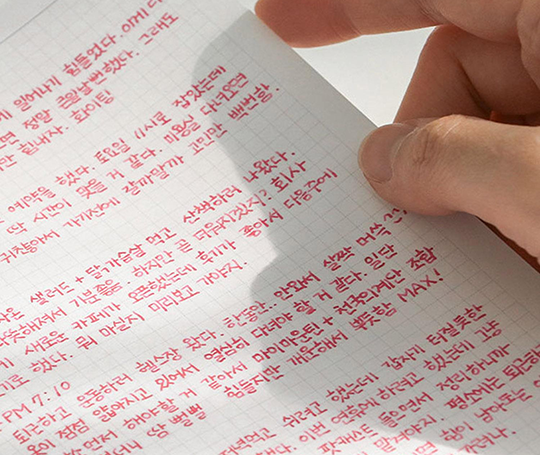 기 일어나기 힘들었다. 이게 다
면 정말 큰일날뻔 했다. 그래도
만 힘내자. 화이팅
예약을 했다. 토요일 11시로 잡았는데
단 시간이 맞을 거 같다. 미용실
귀찮아서 가기전에 갈까말까 고민만 백번함.
샐러드 + 닭가슴살 먹고 산책하러 나왔다.
따뜻해서 기분좋음. 하지만 곧 더워지겠지? 회사
새로운 카페가 오픈했는데 후기가 좋아서 다음주에
기로 했다. 뭐 마실지 미리보고 가야지.
PM 7:10
퇴근하고 운동하러 헬스장 왔다. 한동안 안와서 살짝 머쓱
이 점점 많아지고 있어서 열심히 다녀야 할 거 같다. 일단
면서 해야할 거 같아서 마이마운틴 + 천국의계단 조합
더니 땀 뻘뻘 힘들지만 개운해서 뿌듯함 MAX!
저녁먹고 쉬려고 했는데 갑자기 터질듯한
이번 연휴에 하려고 했는데 그냥
팟캐스트 들으면서 정리하니까
평소에는 퇴근하